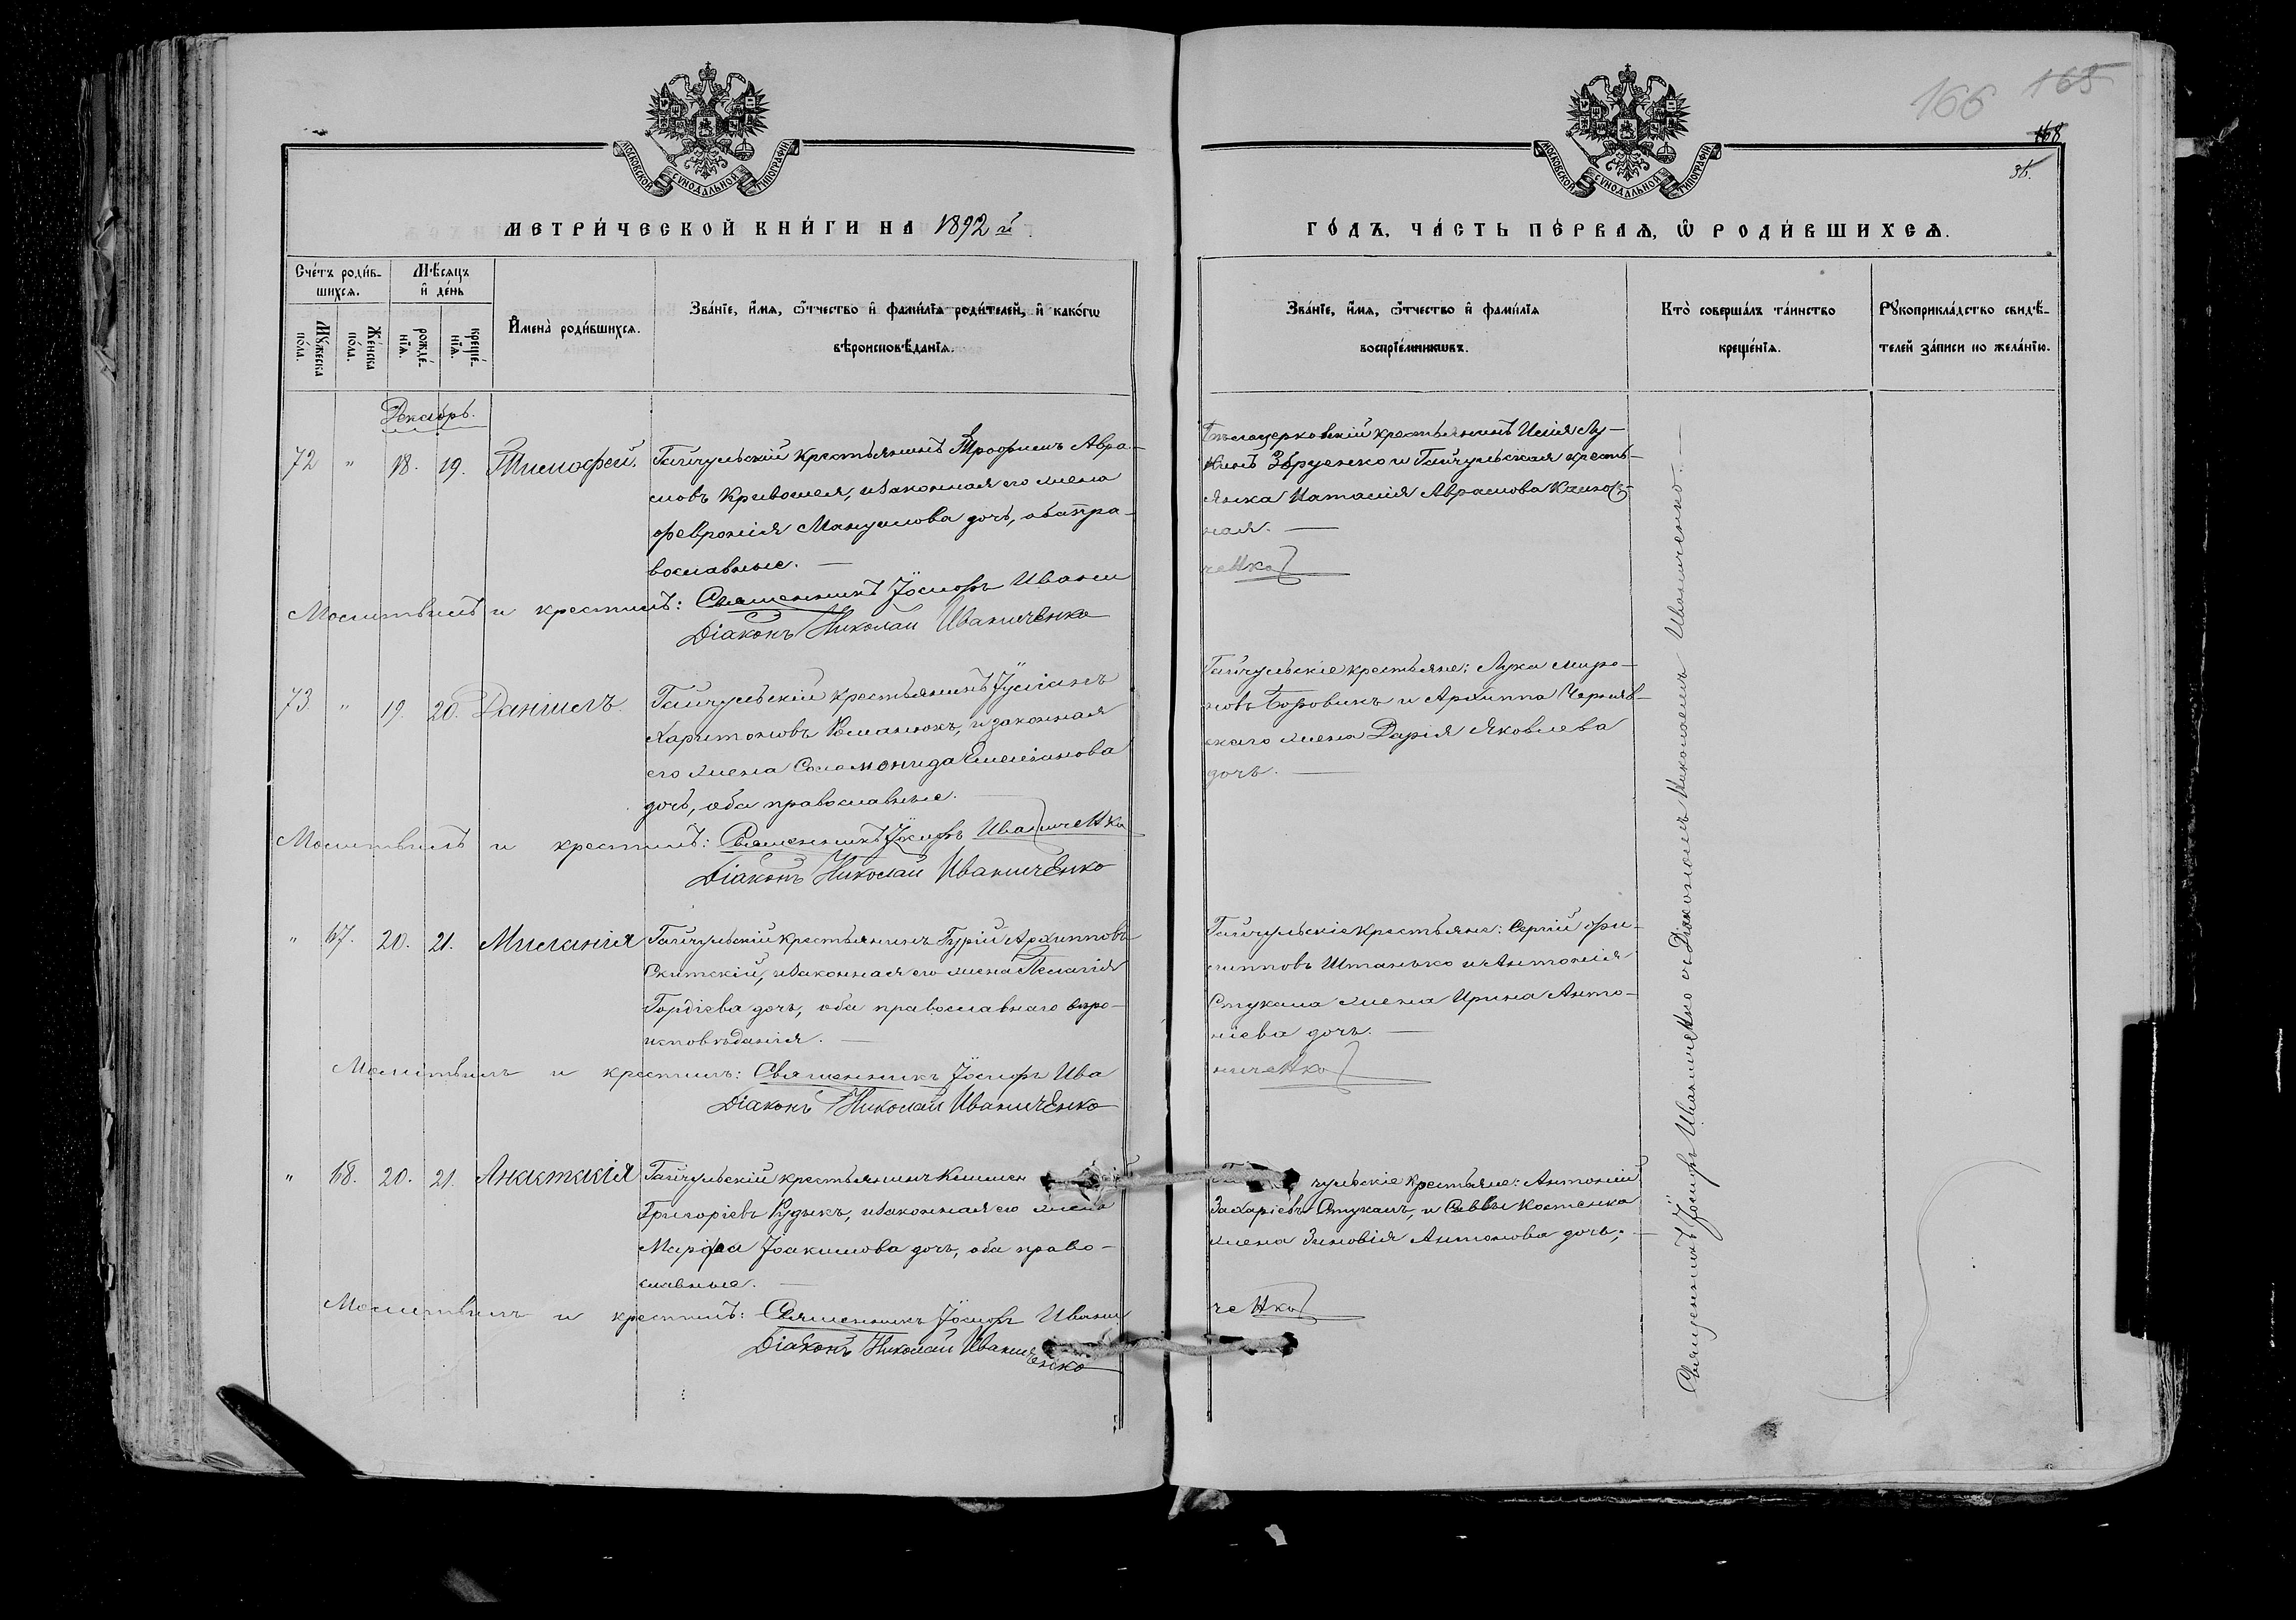 166 165
168
36.
МОСКОВСКОЙ СѴНОДАЛЬНОЙ ТИПОГРАФІИ
МОСКОВСКОЙ СѴНОДАЛЬНОЙ ТИПОГРАФІИ
МЕТРИ́ЧЕСКОЙ КНИ́ГИ НА 1892 й
ГО́ДЪ, ЧА́СТЬ ПЕ́РВАѦ, Ѡ РОДИ́ВШИХСѦ.
Сче́тъ роди́в-
шихсѧ.
Мꙋ́жеска
по́ла.
Же́нска
по́ла.
Мѣ́сѧцъ
и҆ де́нь
рожде́-
нїѧ.
креще́-
нїѧ.
И҆мена̀ роди́вшихсѧ.
Зва́нїе, и҆́мѧ, ѻ҆́тчество и҆ фами́лїѧ роди́телей, и҆ како́гѡ
вѣроисповѣ́данїѧ.
Зва́нїе, и҆́мѧ, ѻ҆́тчество и҆ фами́лїѧ
воспрїе́мникѡвъ.
Кто̀ соверша́лъ та́инство
креще́нїѧ.
Рꙋкоприкла́дство свидѣ́-
телей за́писи по жела́нїю.
Декабрь.
72 " 18. 19. Тимофей. Гайчульскій крестьянинъ Трофимъ Авра-
мовъ Кривошея, и законная его жена
Февронія Мануилова дочь, оба пра-
вославные. —
Бѣлоцерковскій крестьянинъ Илія Лу-
кинъ Збруенко и Гайчульская кресть-
янка Наталія Аврамова
ная. —
Молитвилъ и крестилъ: Священникъ Іосифъ Ивани
ченко
Діаконъ Николай Иваниченко
73 " 19. 20. Даніилъ. Гайчульскій крестьянинъ Іуліанъ
Харитоновъ Романюкъ, и законная
его жена Соломонида Емеліанова
дочь, оба православные. —
Гайчульскіе крестьяне: Лука Миро-
новъ Боровикъ и Архиппа Чернявс-
скаго жена Дарія Яковлева
дочь. —
Молитвилъ и крестилъ: Священникъ Іосифъ Иваниченко
Діаконъ Николай Иваниченко
" 67. 20. 21. Миланія Гайчульскій крестьянинъ Гурій Архипповъ
Скитскій, и законная его жена Пелагія
Гордіева дочь, оба православнаго вѣро-
исповѣданія. —
Гайчульскіе крестьяне: Сергій Фи-
липповъ Штанько и Антонія
Стукала жена Ирина Анто-
ніева дочь. —
Молитвилъ и крестилъ: Священникъ Іосифъ Ива
ниченко
Діаконъ Николай Иваниченко
" 68. 20. 21. Анастасія Гайчульскій крестьянинъ Климен
Григоріевъ Рудыкъ, и законная его жена
Марфа Іоакимова дочь, оба право-
славные. —
чульскіе крестьяне: Антоній
Захаріевъ Стукалъ, и Саввы Костенка
жена Зиновія Антонова дочь. —
Молитвилъ и крестилъ: Священникъ Іосифъ Ивани
ченко
Діаконъ Николай Иваниченко
Священникъ Іосифъ Иваниченко съ Діакономъ Николаемъ Иваниченко. —